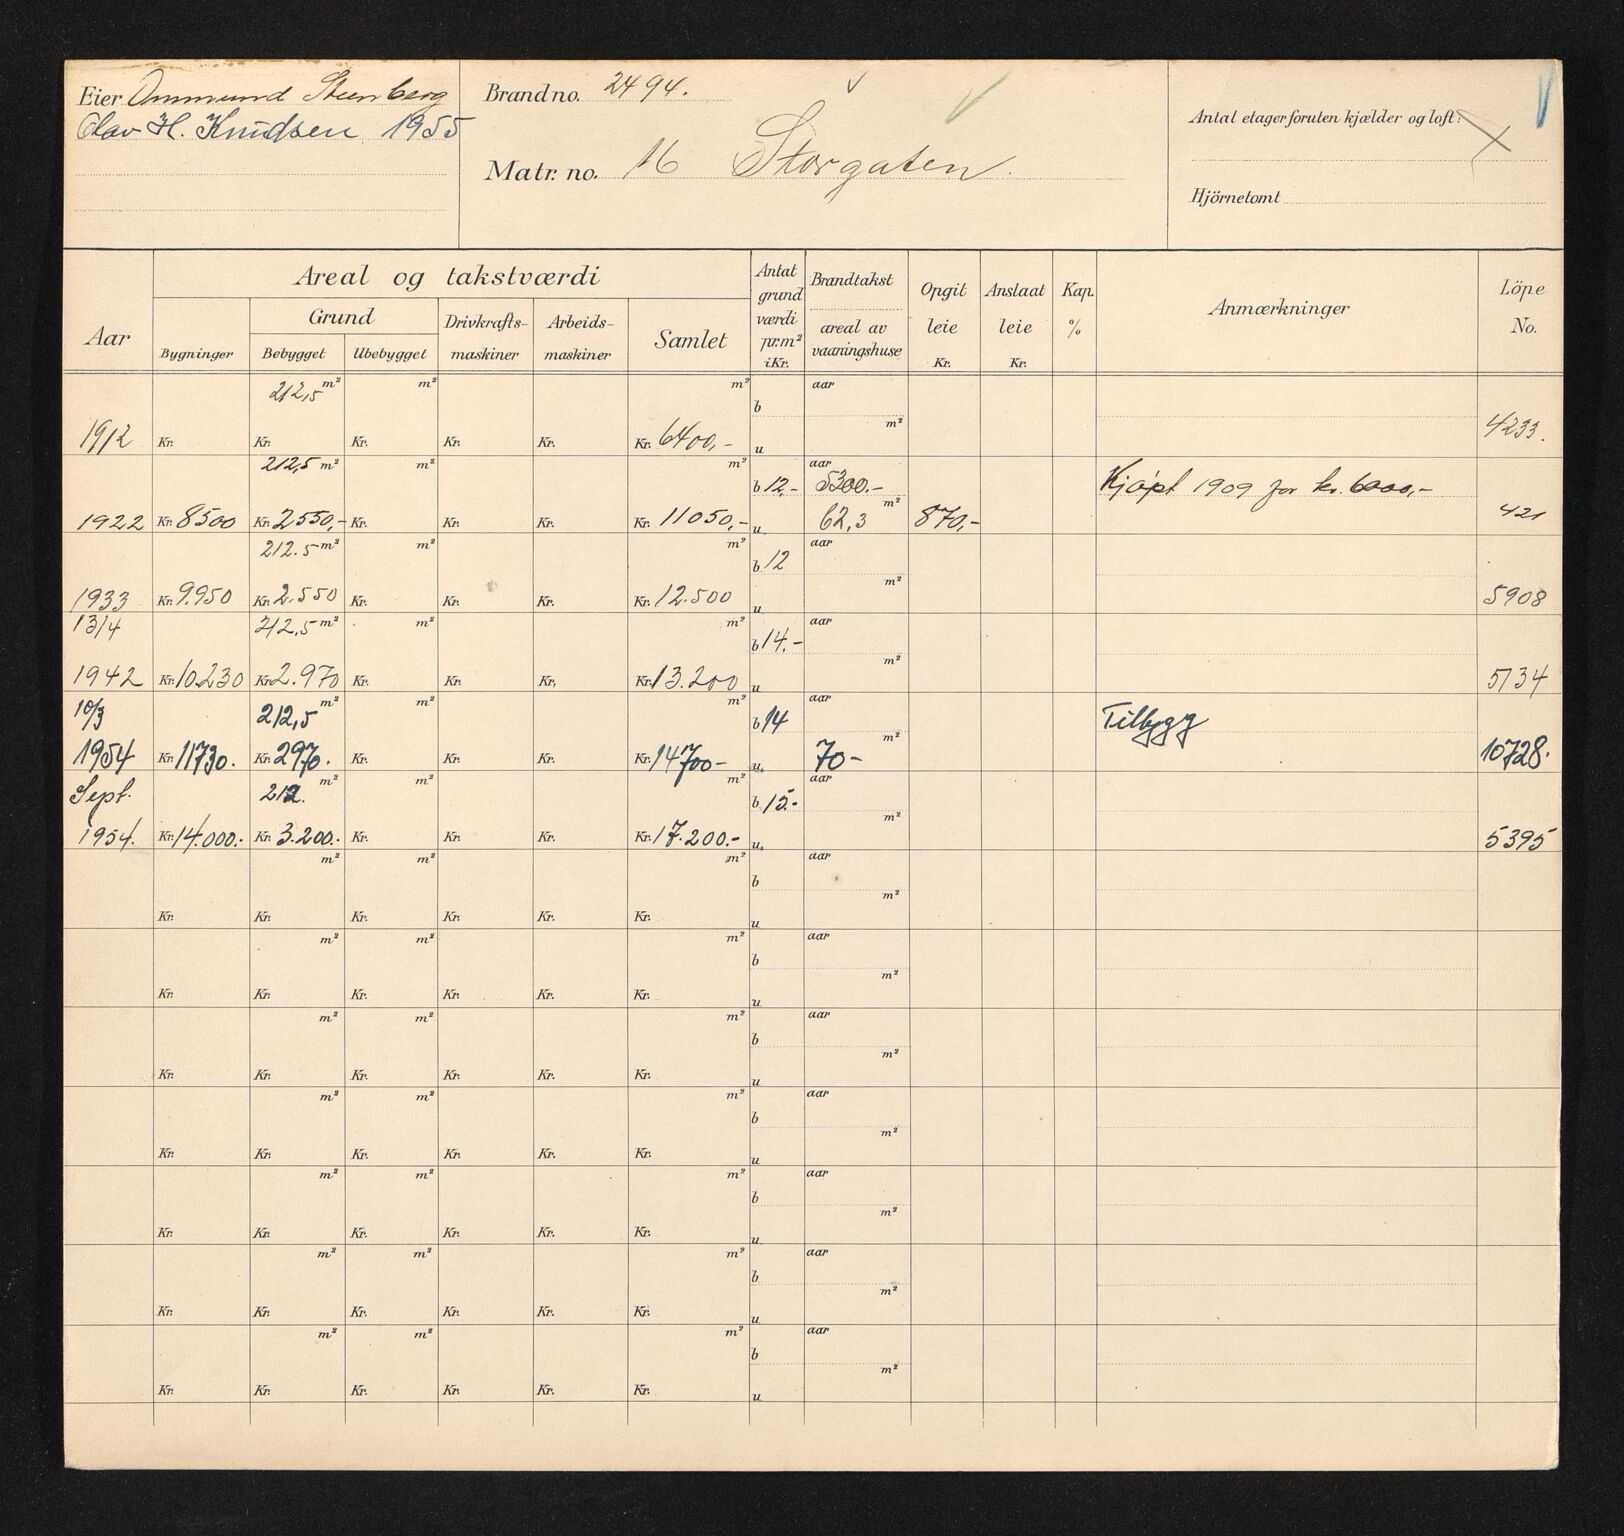 Eier Ommund Stenberg
Olav H. Knudsen 1955
Brandno. 2494.
Matr. no. 16 Storgaten.
Antal etager foruten kjælder og loft:
Hjörnetomt
Aar
Areal og takstværdi
Bygninger
Grund
Bebygget
Ubebygget
Drivkrafts-
maskiner
Arbeids-
maskiner
Samlet
Antat
grund
værdi
pr.m²
i Kr.
Brandtakst
areal av
vaaningshuse
Opgit
leie
Kr.
Anslaat
leie
Kr.
Kap.
%
Anmærkninger
Löpe
No.
212,5 m² m² m² aar
b
m²
1912 Kr. Kr. Kr. Kr. Kr. Kr. 6400,- u 4233.
212,5 m² m² m² aar
b 12,- 5300.- Kjøpt 1909 for kr. 6000,-
m²
1922 Kr. 8500 Kr. 2550,- Kr. Kr. Kr. Kr. 11050,- u 62,3 870,- 421
212.5 m² m² m² aar
b 12
m²
1933 Kr. 9.950 Kr. 2.550 Kr. Kr. Kr. Kr. 12.500 u 5908
13/4 212,5 m² m² m² aar
b 14.-
m²
1942 Kr. 10.230 Kr. 2.970 Kr. Kr. Kr. Kr. 13.200 u 5134
10/3 212,5 m² m² m² aar
b 14 Tilbygg
m²
1954 Kr. 11730. Kr. 2970. Kr. Kr. Kr. Kr. 14700- u. 70- 10728.
Sept. 212. m² m² m² aar
b 15.-
m²
1954. Kr. 14.000.- Kr. 3.200.- Kr. Kr. Kr. Kr. 17.200.- u. 5395
m² m² m² aar
b
m²
Kr. Kr. Kr. Kr. Kr. Kr. u
m² m² m² aar
b
m²
Kr. Kr. Kr. Kr. Kr. Kr. u
m² m² m² aar
b
m²
Kr. Kr. Kr. Kr. Kr. Kr. u
m² m² m² aar
b
m²
Kr. Kr. Kr. Kr. Kr. Kr. u
m² m² m² aar
b
m²
Kr. Kr. Kr. Kr. Kr. Kr. u
m² m² m² aar
b
m²
Kr. Kr. Kr. Kr. Kr. Kr. u
m² m² m² aar
b
m²
Kr. Kr. Kr. Kr. Kr. Kr. u